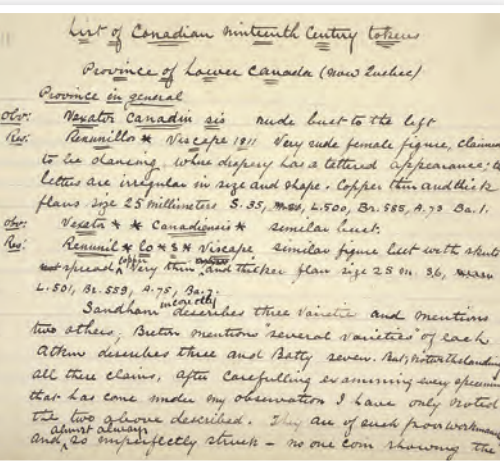 List of Canadian nineteenth Century tokens
Province of Lower Canada (now Quebec)
Province in general
Obv: Vexator Canadin sis rude bust to the left
Rev: Renunillos * Viscape 1811 Very rude female figure,
to be dancing whose drapery has a tettered appearance;
letters are irregular in size and shape. Copper thin and thick
flans size 25 millimeters S. 35, L. 500, Br. 585, A. 73 Ba. 1.
Obv: Vexator * * Canadiensis * similar bust.
Rev: Renunil * lo * s * Viscape similar figure but with skirts
spread copper Very thin and thicker flan size 25 m. 36,
L. 501, Br. 559, A. 75, Ba. 2.
Sandham incorrectly describes three varieties and mentions
two others, Breton mentions "several varieties" of each
Atkin describes three and Batty seven. But, notwithstanding
all these claims, after carefulling examining every specimen
that has come under my observation I have only noted
the two above described. They are of such poor workman
and almost always so imperfectly struck – no one coin showing the